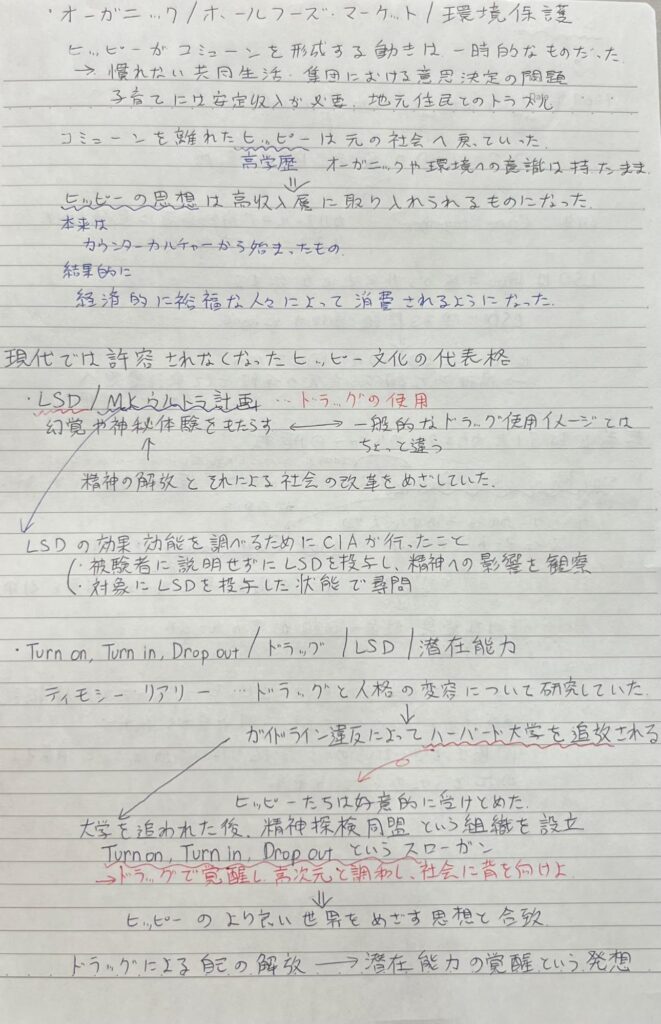 ・オーガニック/ホールフーズ・マーケット/環境保護
ヒッピーがコミューンを形成する動きは一時的なものだった
→ 慣れない共同生活・集団における意思決定の問題
子育てには安定収入が必要、地元住民とのトラブル
コミューンを離れたヒッピーは元の社会へ戻っていった.
高学歴 オーガニックや環境への意識は持たまま.
⇓
ヒッピーの思想は高収入層に取り入れられるものになった.
本来は
カウンターカルチャーから始まったもの.
結果的に
経済的に裕福な人々によって消費されるようになった.
現代では許容されなくなったヒッピー文化の代表格
・LSD/MKウルトラ計画 …ドラッグの使用
幻覚や神秘体験をもたらす ⟷ 一般的なドラッグ使用イメージとは
↑ ちょっと違う
精神の解放とそれによる社会の改革をめざしていた.
LSDの効果・効能を調べるためにCIAが行ったこと
・被験者に説明せずにLSDを投与し、精神への影響を観察
・対象にLSDを投与した状態で尋問
・Turn on, Turn in, Drop out/ドラッグ/LSD/潜在能力
ティモシー リアリー …ドラッグと人格の変容について研究していた.
↓
ガイドライン違反によってハーバード大学を追放される
ヒッピーたちは好意的に受けとめた.
大学を追われた後、精神探検同盟という組織を設立
Turn on, Turn in, Drop out というスローガン
→ドラッグで覚醒し、高次元と調和し、社会に背を向けよ
⇓
ヒッピーのより良い世界をめざす思想と合致.
ドラッグによる自己の解放 → 潜在能力の覚醒という発想